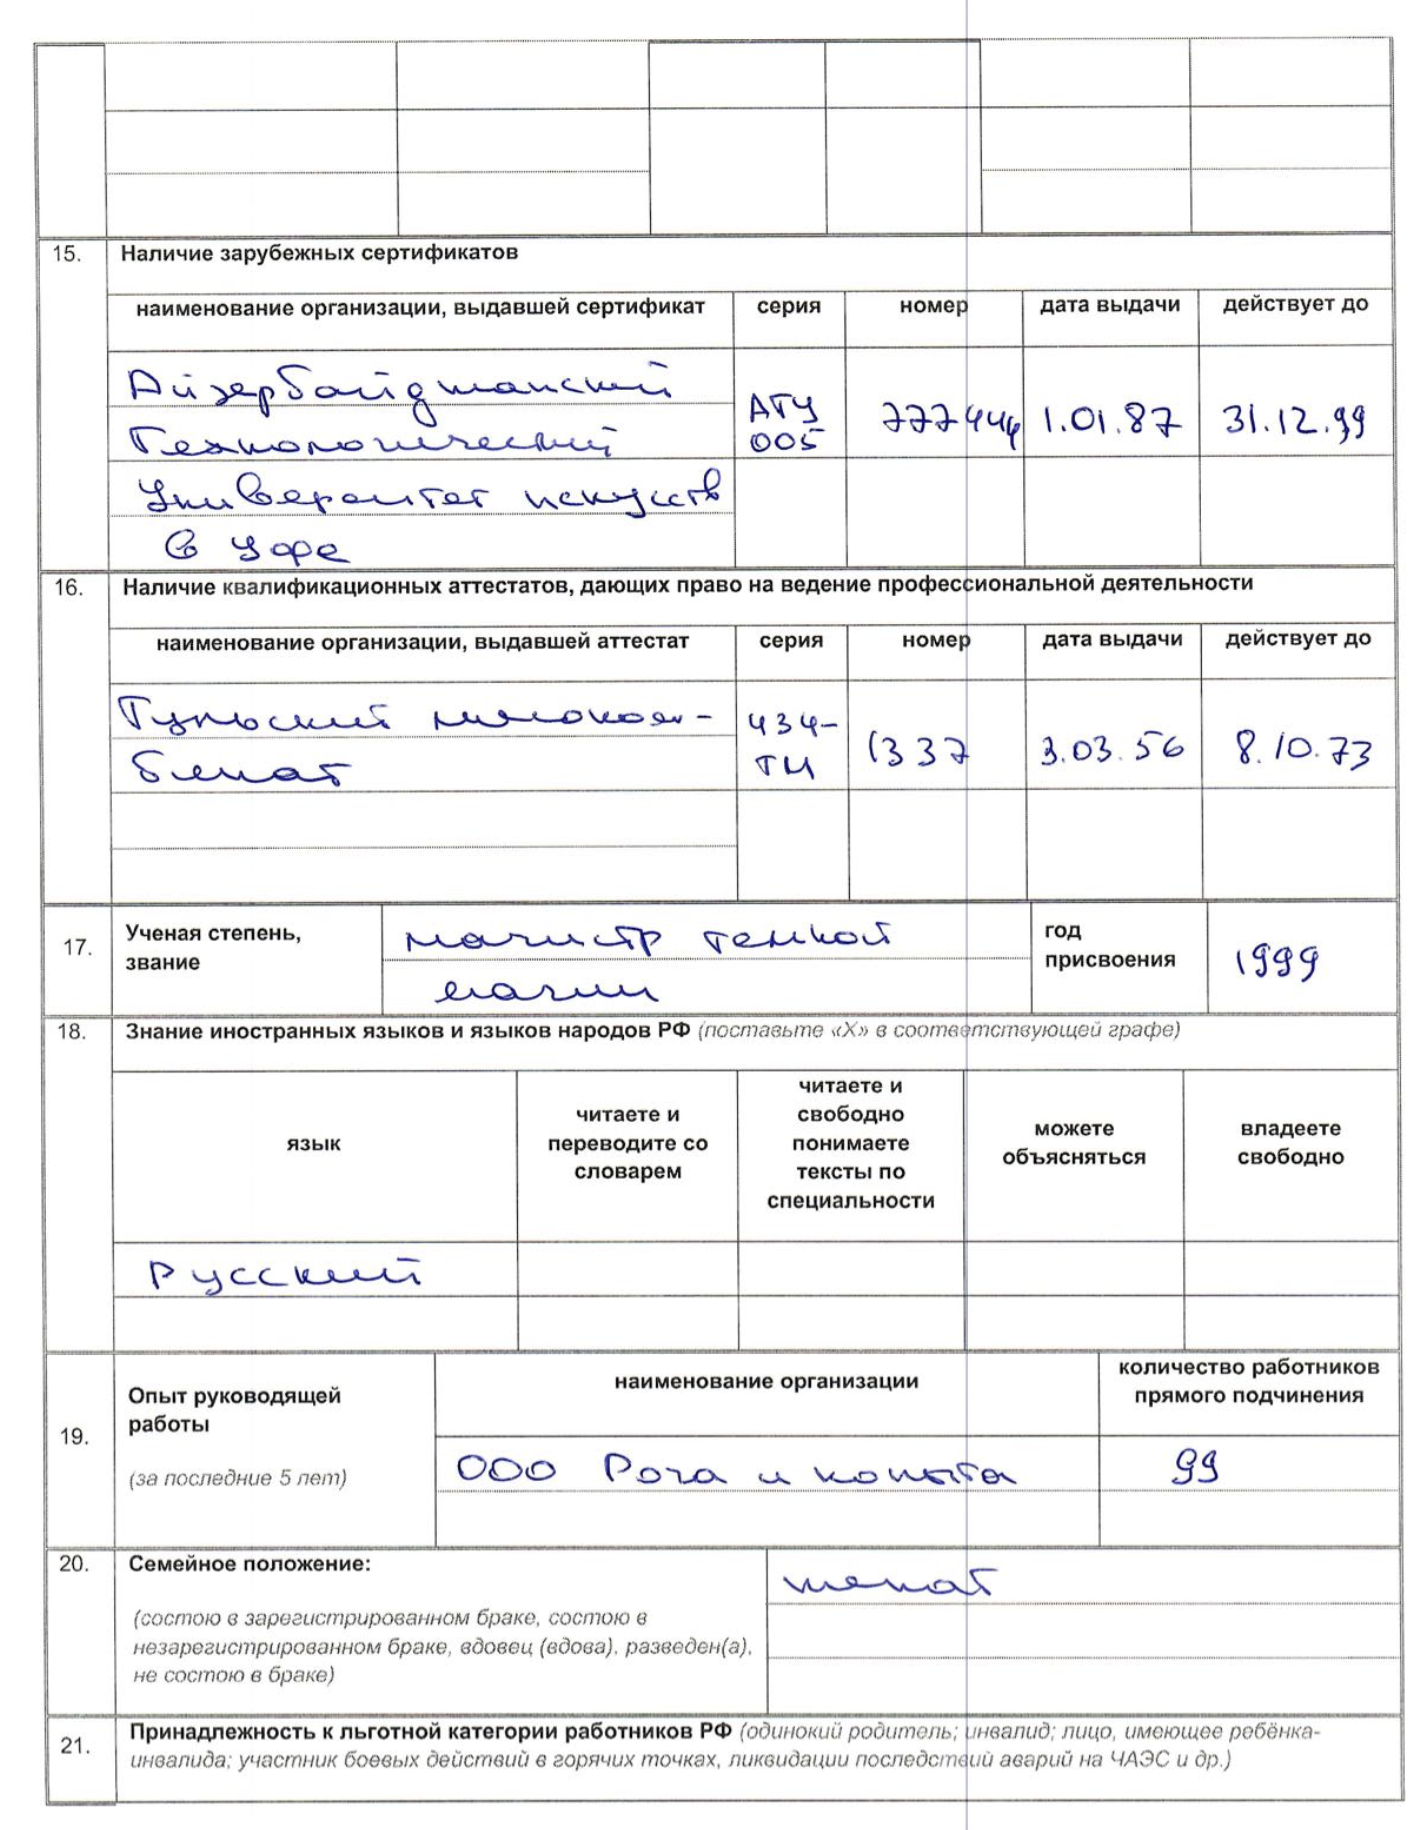 15. Наличие зарубежных сертификатов
наименование организации, выдавшей сертификат серия номер дата выдачи действует до
Айзербайджанский
Технологический
АТУ
005
777444 1.01.87 31.12.99
Университет искуств
в Уфе
16. Наличие квалификационных аттестатов, дающих право на ведение профессиональной деятельности
наименование организации, выдавшей аттестат серия номер дата выдачи действует до
Тульский мелоком-
бинат
434-
ТЦ
1337 3.03.56 8.10.73
17. Ученая степень,
звание
магистр темной
магии
год
присвоения
1999
18. Знание иностранных языков и языков народов РФ (поставьте «Х» в соответствующей графе)
язык
читаете и
переводите со
словарем
читаете и
свободно
понимаете
тексты по
специальности
можете
объясняться
владеете
свободно
Русский
19. Опыт руководящей
работы
(за последние 5 лет)
наименование организации
количество работников
прямого подчинения
ООО Рога и копыта 99
20. Семейное положение:
(состою в зарегистрированном браке, состою в
незарегистрированном браке, вдовец (вдова), разведен(а),
не состою в браке)
женат
21. Принадлежность к льготной категории работников РФ (одинокий родитель; инвалид; лицо, имеющее ребёнка-
инвалида; участник боевых действий в горячих точках, ликвидации последствий аварий на ЧАЭС и др.)